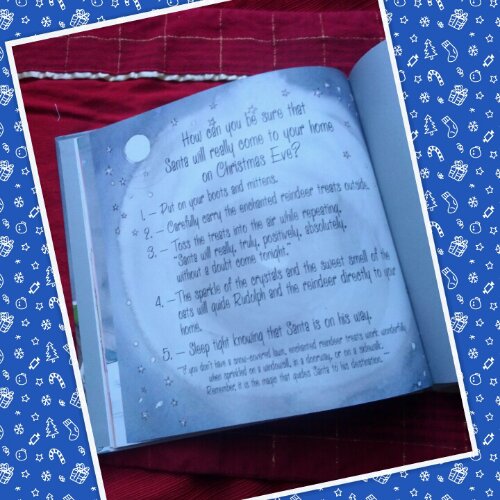 How can you be sure that
Santa will really come to your home
on Christmas Eve?
1. – Put on your boots and mittens.
2. – Carefully carry the enchanted reindeer treats outside.
3. – Toss the treats into the air while repeating,
"Santa will really, truly, positively, absolutely,
without a doubt come tonight."
4. – The sparkle of the crystals and the sweet smell of the
oats will guide Rudolph and the reindeer directly to your
home.
5. – Sleep tight knowing that Santa is on his way.
*If you don't have a snow-covered lawn, enchanted reindeer treats work wonderfully
when sprinkled on a windowsill, in a doorway, or on a sidewalk.
Remember, it is the magic that guides Santa to his destination.